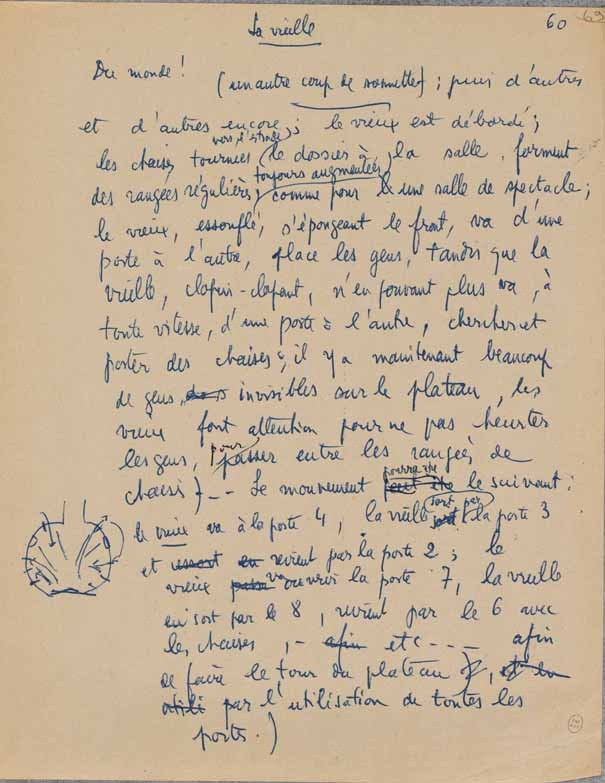 La vieille
60
69
Du monde ! (un autre coup de sonnette) ; puis d'autres
et d'autres encore ; le vieux est débordé ;
vers l'estrade
les chaises tournées (le dossier à la salle, forment
toujours augmentées
des rangées régulières, comme pour une salle de spectacle ;
le vieux, essoufflé, s'épongeant le front, va d'une
porte à l'autre, place les gens, tandis que la
vieille, clopin-clopant, n'en pouvant plus va, à
toute vitesse, d'une porte à l'autre, chercher et
porter des chaises ; il y a maintenant beaucoup
de gens invisibles sur le plateau, les
vieux font attention pour ne pas heurter
les gens, pour passer entre les rangées de
chaises) --- Le mouvement pourra être le suivant :
le vieux va à la porte 4, la vieille sort par la porte 3
et revient par la porte 2 ; le
vieux va ouvrir la porte 7, la vieille
en sort par le 8, revient par le 6 avec
les chaises, - afin etc --- afin
de faire le tour du plateau,
par l'utilisation de toutes les
portes.)